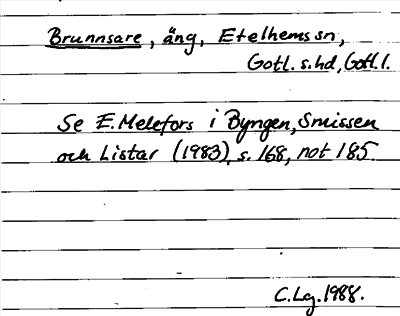 Brunnsare, äng, Etelhems sn,
Gotl. s. hd, Gotl. l.
Se E. Melefors i Byngen, Smissen
och Listar (1983), s. 168, not 185.
C. Lg. 1988.